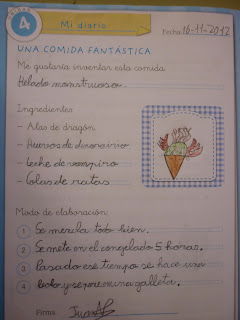 4
Mi diario
Fecha: 16-11-2012
UNA COMIDA FANTÁSTICA
Me gustaría inventar esta comida:
Helado monstruoso.
Ingredientes
- Alas de dragón
- Huevos de dinosaurio
- Leche de vampiro
- Colas de ratas
Modo de elaboración
1 Se mezcla todo bien.
2 Se mete en el congelado 5 horas.
3 Pasado ese tiempo se hace una
4 bola y se pone una galleta.
Firma